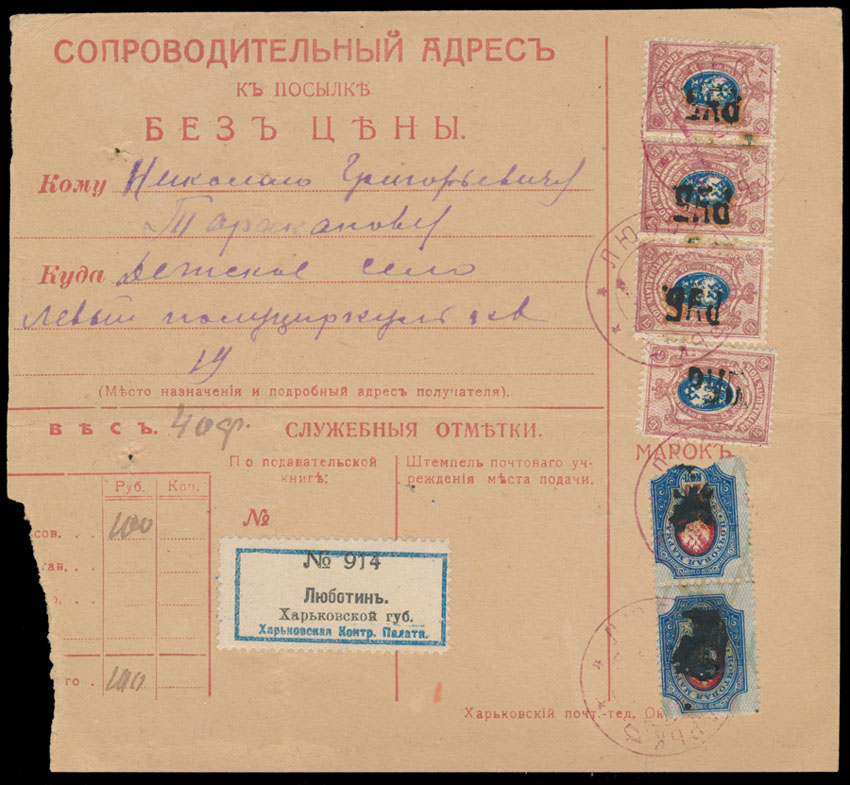 СОПРОВОДИТЕЛЬНЫЙ АДРЕСЪ
КЪ ПОСЫЛКѢ
БЕЗЪ ЦѢНЫ.
Кому Николаю Григорьевичу
Куда Детское село
левый полуциркуль
19
(Мѣсто назначенія и подробный адресъ получателя).
ВѢСЪ. 40ф. СЛУЖЕБНЫЯ ОТМѢТКИ.
МАРОКЪ
Руб. Коп.
По подавательской книгѣ:
Штемпель почтоваго учрежденія мѣста подачи.
сов. . . 100
тав. . .
го . 100
№
№ 914
Люботинъ.
Харьковской губ.
Харьковская Контр. Палата.
Харьковскій почт.-тел. Ок
РУБ.
РУБ.
РУБ.